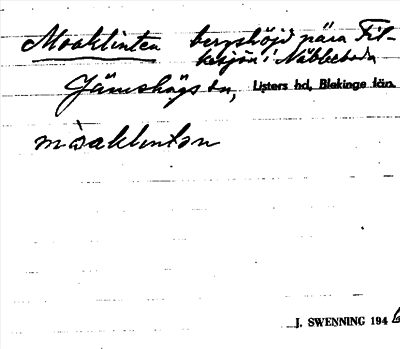 Moaklinten bergshöjd nära Fil-
kesjön i Näbbeboda
Jämshögs sn, Listers hd, Blekinge län.
mòaklintən
J. SWENNING 194